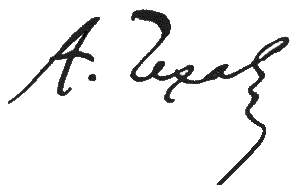 А. Чехов